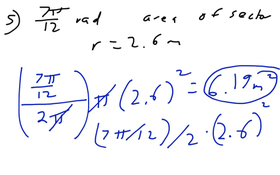 5) 7π/12 rad area of sector
r = 2.6 m
((7π/12)/(2π)) π (2.6)² = 6.19 m²
(7π/12)/2 · (2.6)²